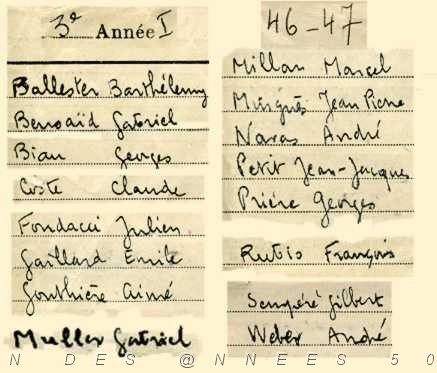 3e Année I
Ballester Barthélemy
Benoaïd Gabriel
Bian Georges
Coste Claude
Fondacci Julien
Gaillard Emile
Gonthière Aimé
Muller Gabriel
46-47
Millan Marcel
Minguès Jean Pierre
Navas André
Petit Jean-Jacques
Prière Georges
Rubio François
Sempéré Gilbert
Weber André
N DES @NNEES 50